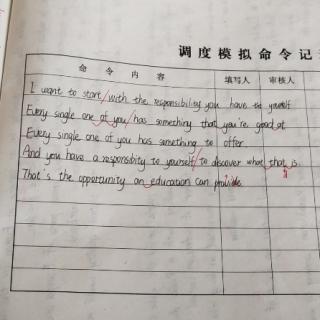 调度模拟命令记
命令内容 填写人 审核人
I want to start / with the responsibility you have to yourself
Every single one of you / has something that you're good at
Every single one of you has something to offer
And you have a responsibity to yourself / to discover what that is.
That's the opportunity an education can provide